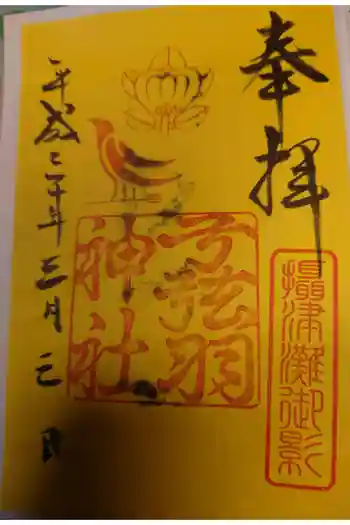 奉拝
攝津灘御影
弓弦羽
神社
平成二十年三月 日